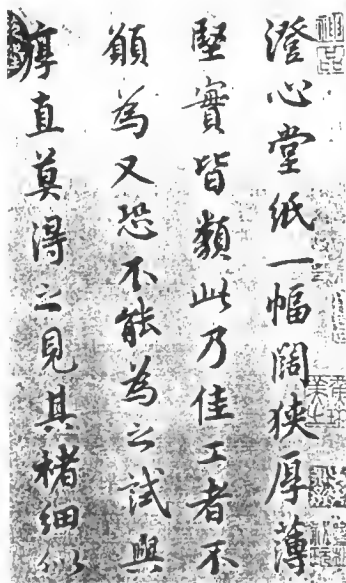 澄心堂紙一幅闊狹厚薄
堅實皆類此乃佳工者不
願為又恐不能為之試與
厚直莫得之見其楮細似